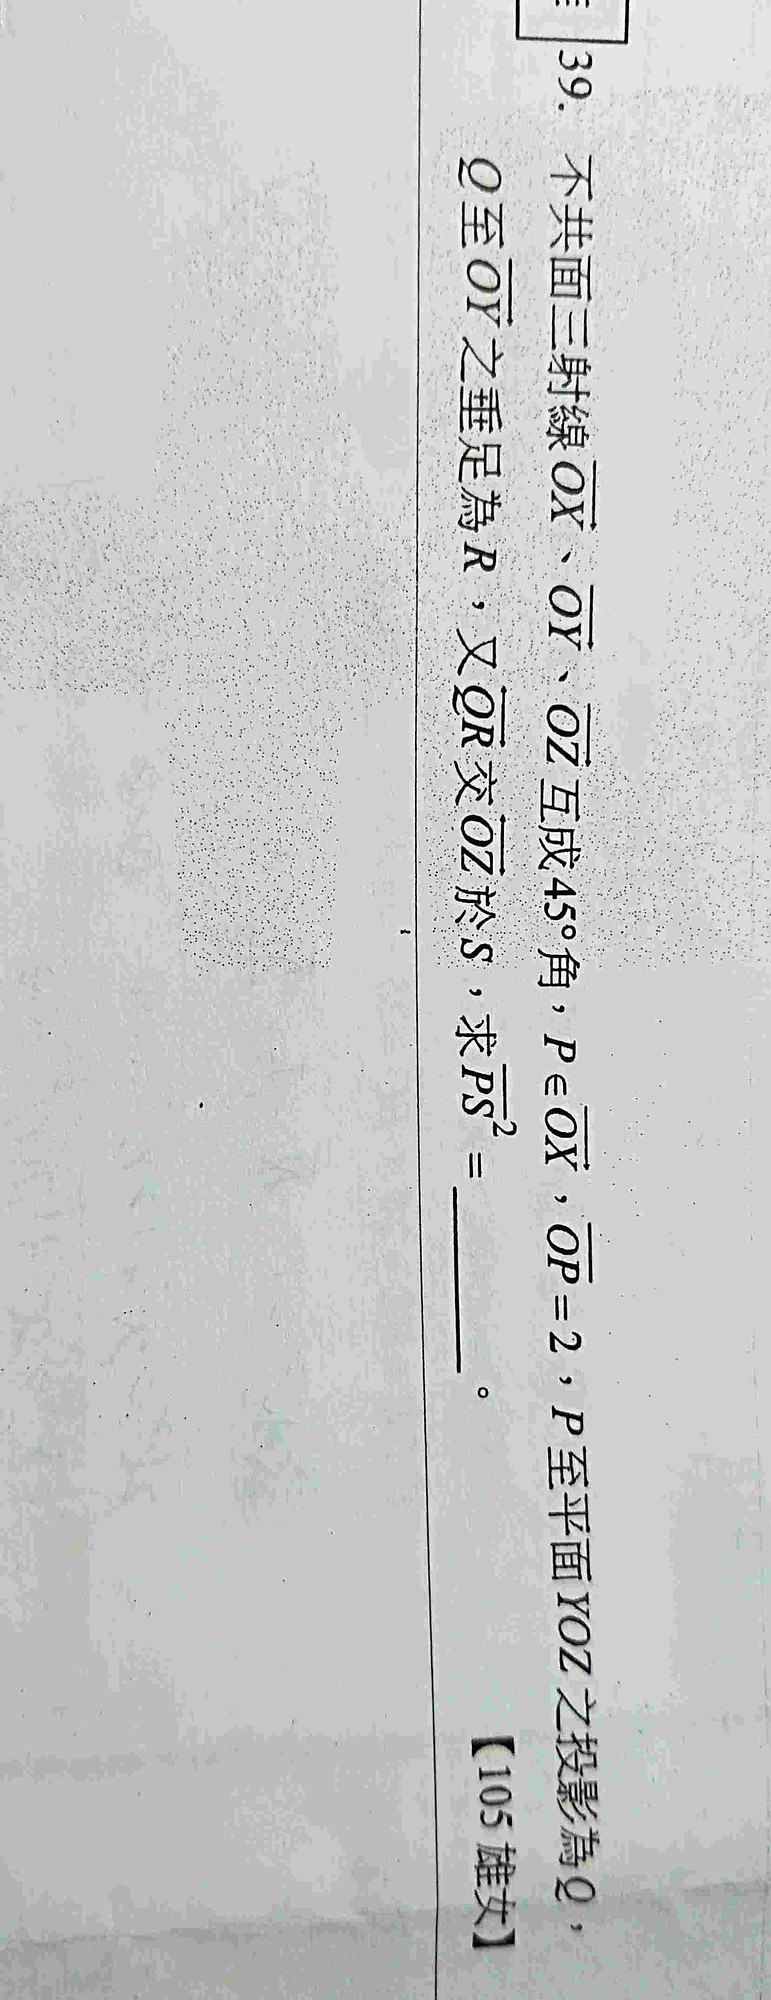 39. 不共面三射線 $\overrightarrow{OX}$、$\overrightarrow{OY}$、$\overrightarrow{OZ}$ 互成45°角，P∈$\overrightarrow{OX}$，$\overline{OP}$=2，P至平面YOZ之投影為Q，
Q至$\overrightarrow{OY}$之垂足為R，又$\overrightarrow{QR}$交$\overrightarrow{OZ}$於S，求$\overline{PS}^2$=______。 【105 雄女】